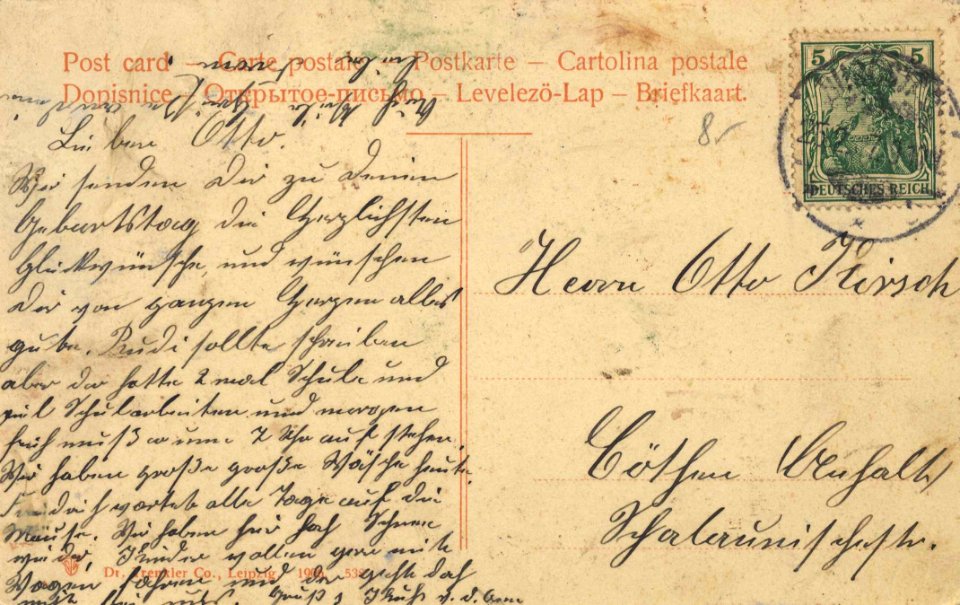 Post card – Carte postale – Postkarte – Cartolina postale
Dopisnice – Открытое-письмо – Levelezö-Lap – Briefkaart.
8.-
5 5
DEUTSCHES REICH
Lieber Otto.
Wir senden Dir zu Deinem
Geburtstag die Herzlichsten
Glückwünsche, und wünschen
Dir von ganzen Herzen alles
gute. Rudi sollte schreiben
aber der hatte 2 mal Schule und
viel Schularbeiten, und morgen
früh muß er um 7 Uhr auf stehen.
Wir haben große große Wäsche heute.
wartet alle Tage auf die
Mäuse. Wir haben hir hoh Schnee
wieder Kinder wollen gern mite
Wagen fahren und der geht doh
nicht bei uns. Gruß &
Dr. Trenkler Co., Leipzig.
Herrn Otto Kirsch
Cöthen Anhalt
Schalaunischestr.